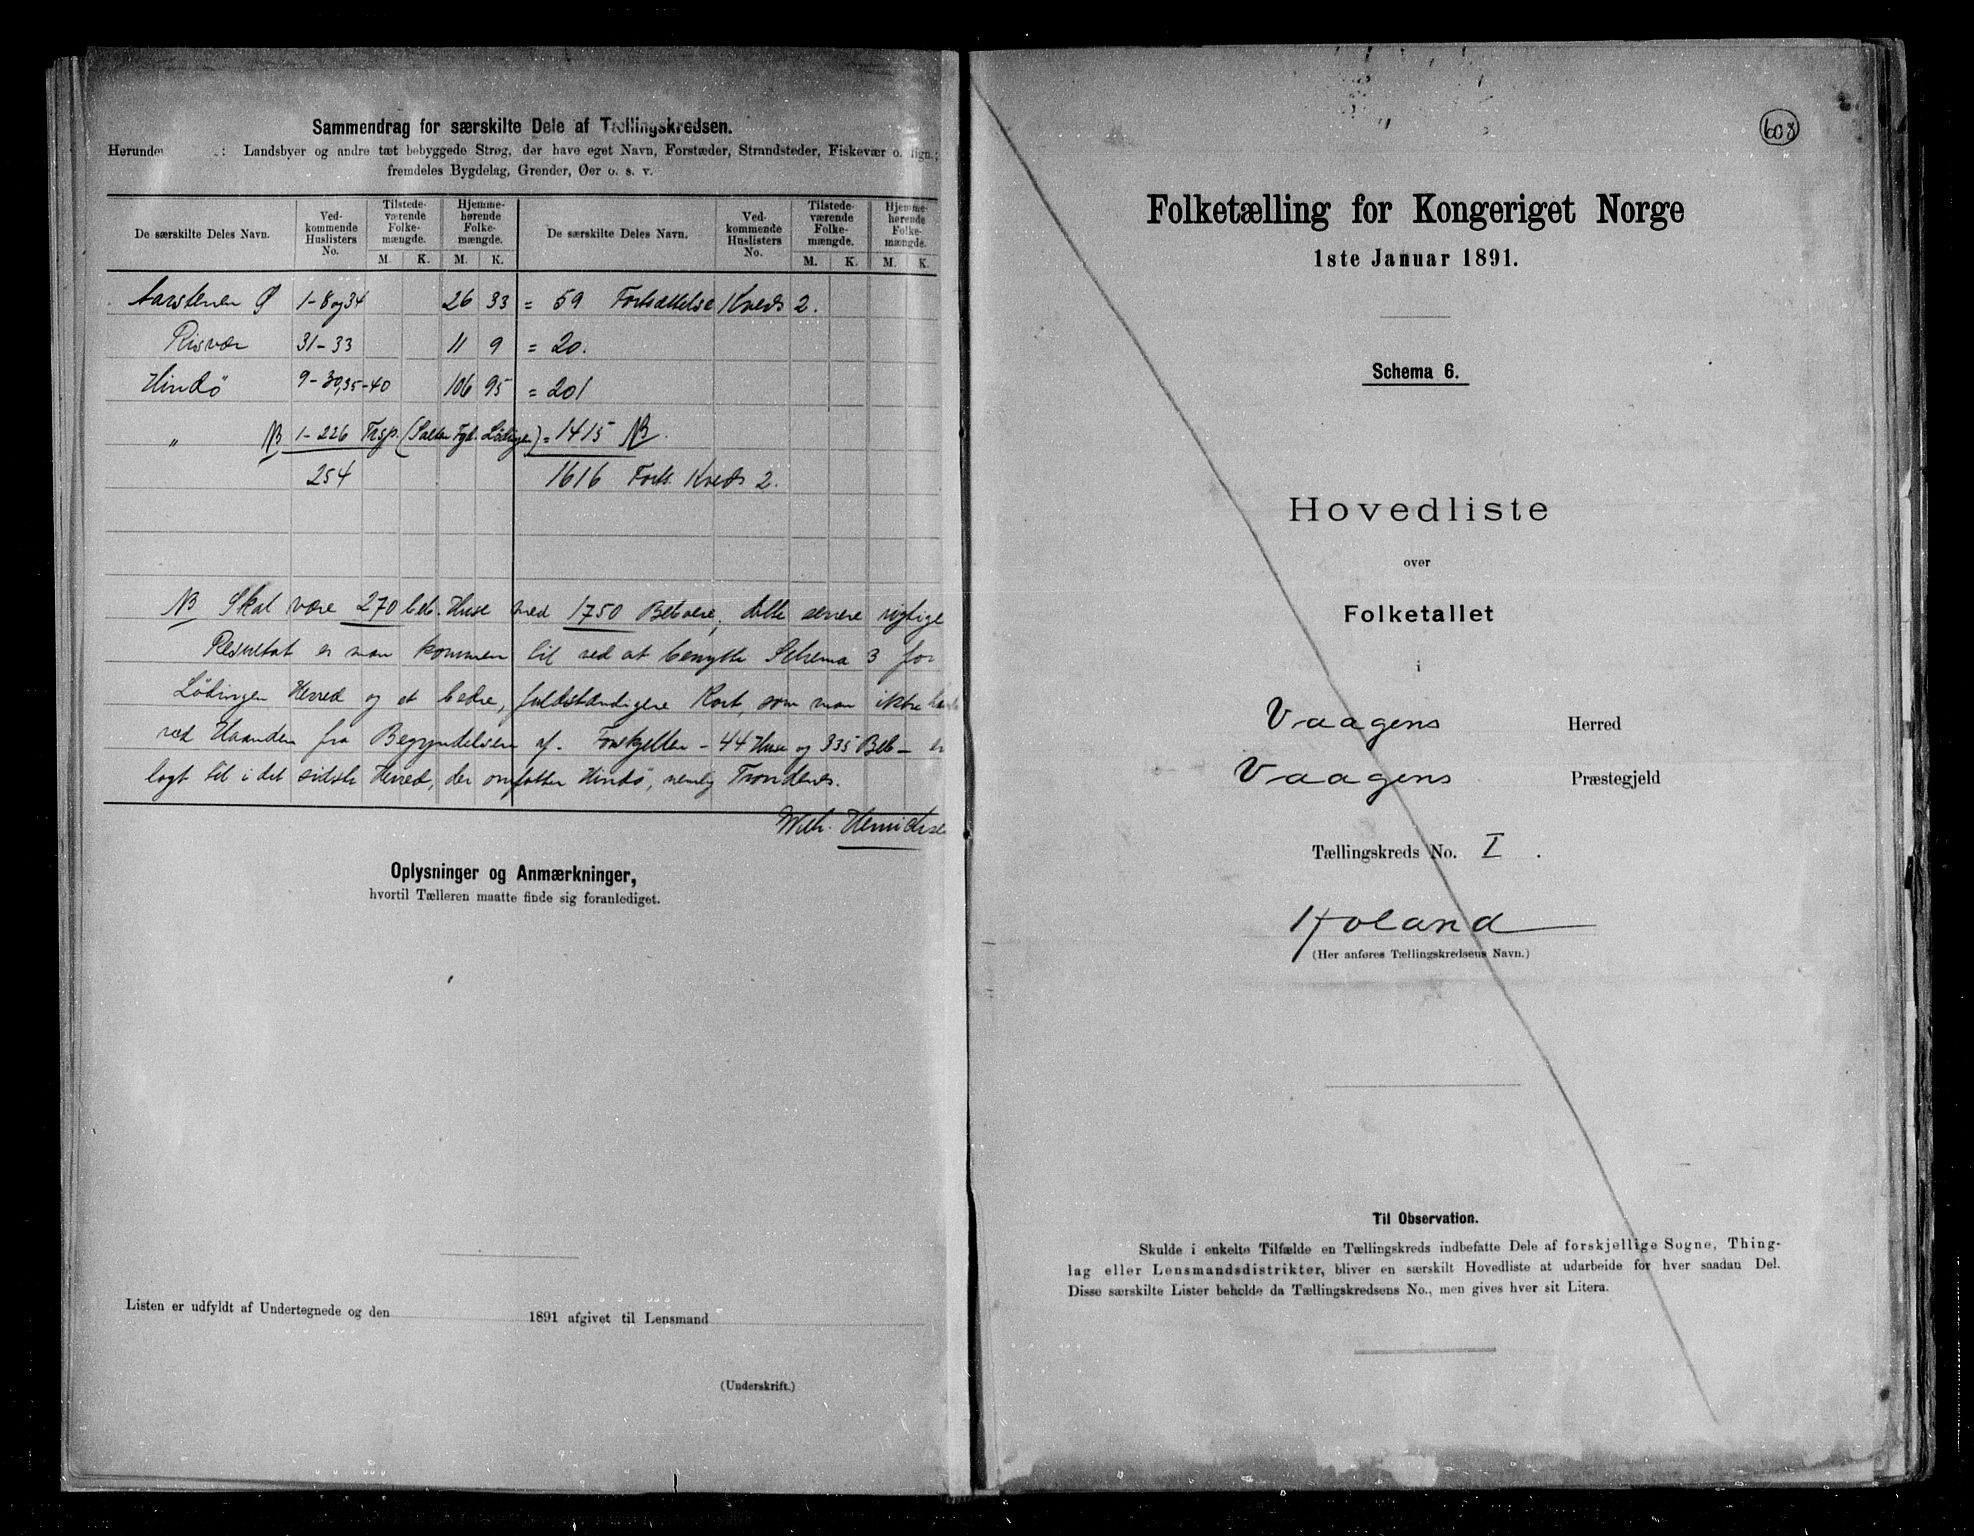 Sammendrag for særskilte Dele af Tællingskredsen.
Herunder : Landsbyer og andre tæt bebyggede Strøg, der have eget Navn, Forstæder, Strandsteder, Fiskevær o. lign.;
fremdeles Bygdelag, Grender, Øer o. s. v.
De særskilte Deles Navn. Ved-kommende Huslisters No. Tilstede-værende Folke-mængde. Hjemme-hørende Folke-mængde. De særskilte Deles Navn. Ved-kommende Huslisters No. Tilstede-værende Folke-mængde. Hjemme-hørende Folke-mængde.
M. K. M. K. M. K. M. K.
Aarstenen Ø 1-8 og 34 26 33 = 59 Fortsættelse Kreds 2.
Risvær 31-33 11 9 = 20.
Hindø 9-30,35-40 106 95 = 201
" NB 1-226 Trsp. (Salten Fgd. Lødingen) = 1415 NB.
254 1616 Forts. Kreds 2.
NB Skal være 270 beb. Huse med 1750 Beboere; dette senere rigtige
Resultat er man kommen til ved at benytte Schema 3 for
Lødingen Herred og et bedre, fuldstændigere Kart, som man ikke havde
ved Haanden fra Begyndelsen af. Forskjellen - 44 Huse og 335 Beb - er
lagt til i det sidste Herred, der omfatter Hindø, nemlig Trondenes.
Wilh. Henrichse
Oplysninger og Anmærkninger,
hvortil Tælleren maatte finde sig foranlediget.
Listen er udfyldt af Undertegnede og den 1891 afgivet til Lensmand
(Underskrift.)
603
Folketælling for Kongeriget Norge
1ste Januar 1891.
Schema 6.
Hovedliste
over
Folketallet
i
Vaagens Herred
Vaagens Præstegjeld
Tællingskreds No. I.
Holand
(Her anføres Tællingskredsens Navn.)
Til Observation.
Skulde i enkelte Tilfælde en Tællingskreds indbefatte Dele af forskjellige Sogne, Thing-
lag eller Lensmandsdistrikter, bliver en særskilt Hovedliste at udarbeide for hver saadan Del.
Disse særskilte Lister beholde da Tællingskredsens No., men gives hver sit Litera.